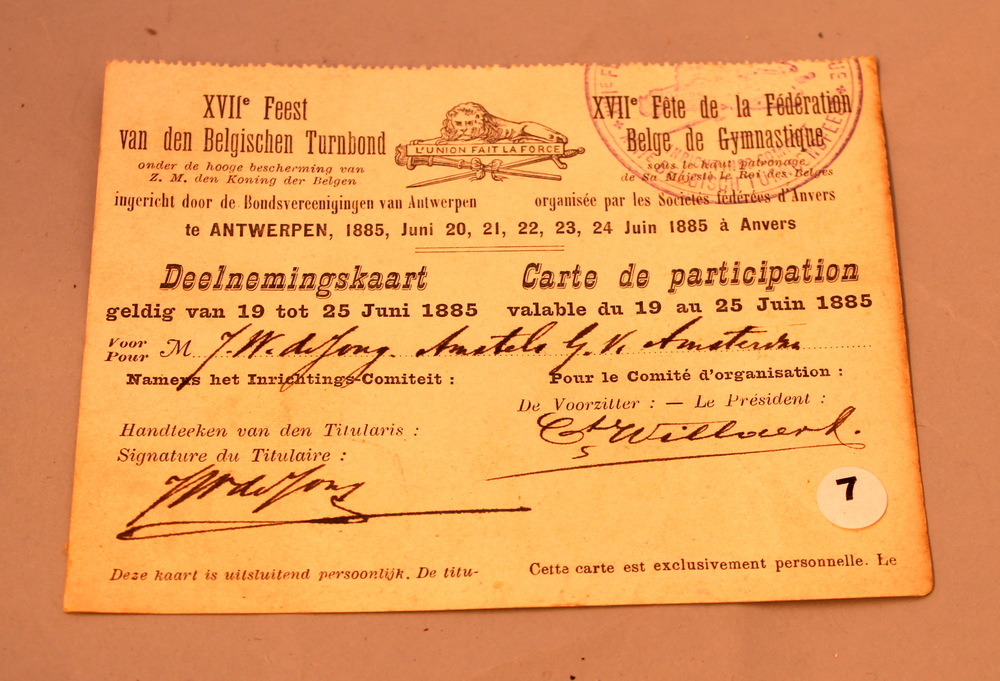 XVIIe Feest
van den Belgischen Turnbond
onder de hooge bescherming van
Z. M. den Koning der Belgen
ingericht door de Bondsvereenigingen van Antwerpen
L'UNION FAIT LA FORCE
XVIIe Fête de la Fédération
Belge de Gymnastique
sous le haut patronage
de Sa Majesté le Roi des Belges
organisée par les Sociétés fédérées d'Anvers
te ANTWERPEN, 1885, Juni 20, 21, 22, 23, 24 Juin 1885 à Anvers
Deelnemingskaart
geldig van 19 tot 25 Juni 1885
Carte de participation
valable du 19 au 25 Juin 1885
Voor
Pour M. J. W. de Jong. Amstels G. V. Amsterdam
Namens het Inrichtings-Comiteit :
Pour le Comité d'organisation :
De Voorzitter : — Le Président :
Handteeken van den Titularis :
Signature du Titulaire :
JW de Jong
7
Deze kaart is uitsluitend persoonlijk. De titu-
Cette carte est exclusivement personnelle. Le